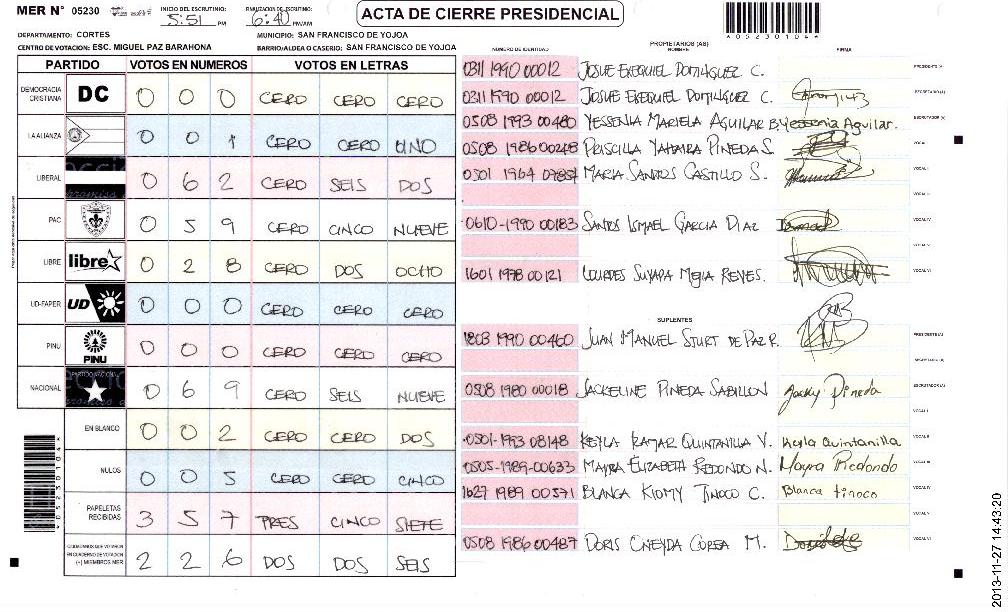 MER N° 05230
INICIO DEL ESCRUTINIO: 5:51 PM
FINALIZACION DEL ESCRUTINIO: 6:40 PM/AM
ACTA DE CIERRE PRESIDENCIAL
A05230104*
DEPARTAMENTO: CORTES
MUNICIPIO: SAN FRANCISCO DE YOJOA
CENTRO DE VOTACION: ESC. MIGUEL PAZ BARAHONA
BARRIO/ALDEA O CASERIO: SAN FRANCISCO DE YOJOA
PARTIDO VOTOS EN NUMEROS VOTOS EN LETRAS
DEMOCRACIA CRISTIANA DC 0 0 0 CERO CERO CERO
LA ALIANZA 0 0 1 CERO CERO UNO
LIBERAL 0 6 2 CERO SEIS DOS
PAC 0 5 9 CERO CINCO NUEVE
LIBRE libre 0 2 8 CERO DOS OCHO
UD-FAPER UD 0 0 0 CERO CERO CERO
PINU PINU 0 0 0 CERO CERO CERO
NACIONAL 0 6 9 CERO SEIS NUEVE
EN BLANCO 0 0 2 CERO CERO DOS
NULOS 0 0 5 CERO CERO CINCO
PAPELETAS RECIBIDAS 3 5 7 TRES CINCO SIETE
CIUDADANOS QUE VOTARON EN CUADERNO DE VOTACION (+) MIEMBROS MER 2 2 6 DOS DOS SEIS
PROPIETARIOS (AS)
NUMERO DE IDENTIDAD NOMBRE FIRMA
0311 1990 00012 JOSUE EXEQUIEL DOMINGUEZ C. PRESIDENTE (A)
0311 1990 00012 JOSUE EXEQUIEL DOMINGUEZ C. SECRETARIO (A)
0508 1993 00480 YESSENIA MARIELA AGUILAR B. Yessenia Aguilar. ESCRUTADOR (A)
0508 1986 00248 PRISCILLA YAHAIRA PINEDA S. VOCAL I
0501 1964 MARIA SANTOS CASTILLO S. VOCAL II
0610-1990 00183 SANTOS ISMAEL GARCIA DIAZ VOCAL IV
VOCAL V
1601 1978 00121 LOURDES SUYAPA MEJIA REYES. VOCAL VI
SUPLENTES
1803 1990 00460 JUAN MANUEL STURT DE PAZ R. PRESIDENTE (A)
SECRETARIO (A)
0508 1980 00018 JACKELINE PINEDA SABILLON Jacky Pineda ESCRUTADOR (A)
VOCAL I
0501-1993 08148 KEYLA RAMAR QUINTANILLA V. Keyla Quintanilla VOCAL II
0505-1989-00633 MAYRA ELIZABETH REDONDO N. Mayra Redondo VOCAL III
1627 1989 00571 BLANCA KIOMY TINOCO C. Blanca tinoco VOCAL IV
VOCAL V
0508 1986 00487 DORIS ONEYDA COREA M. VOCAL VI
*A05230104*
2013-11-27 14:43:20